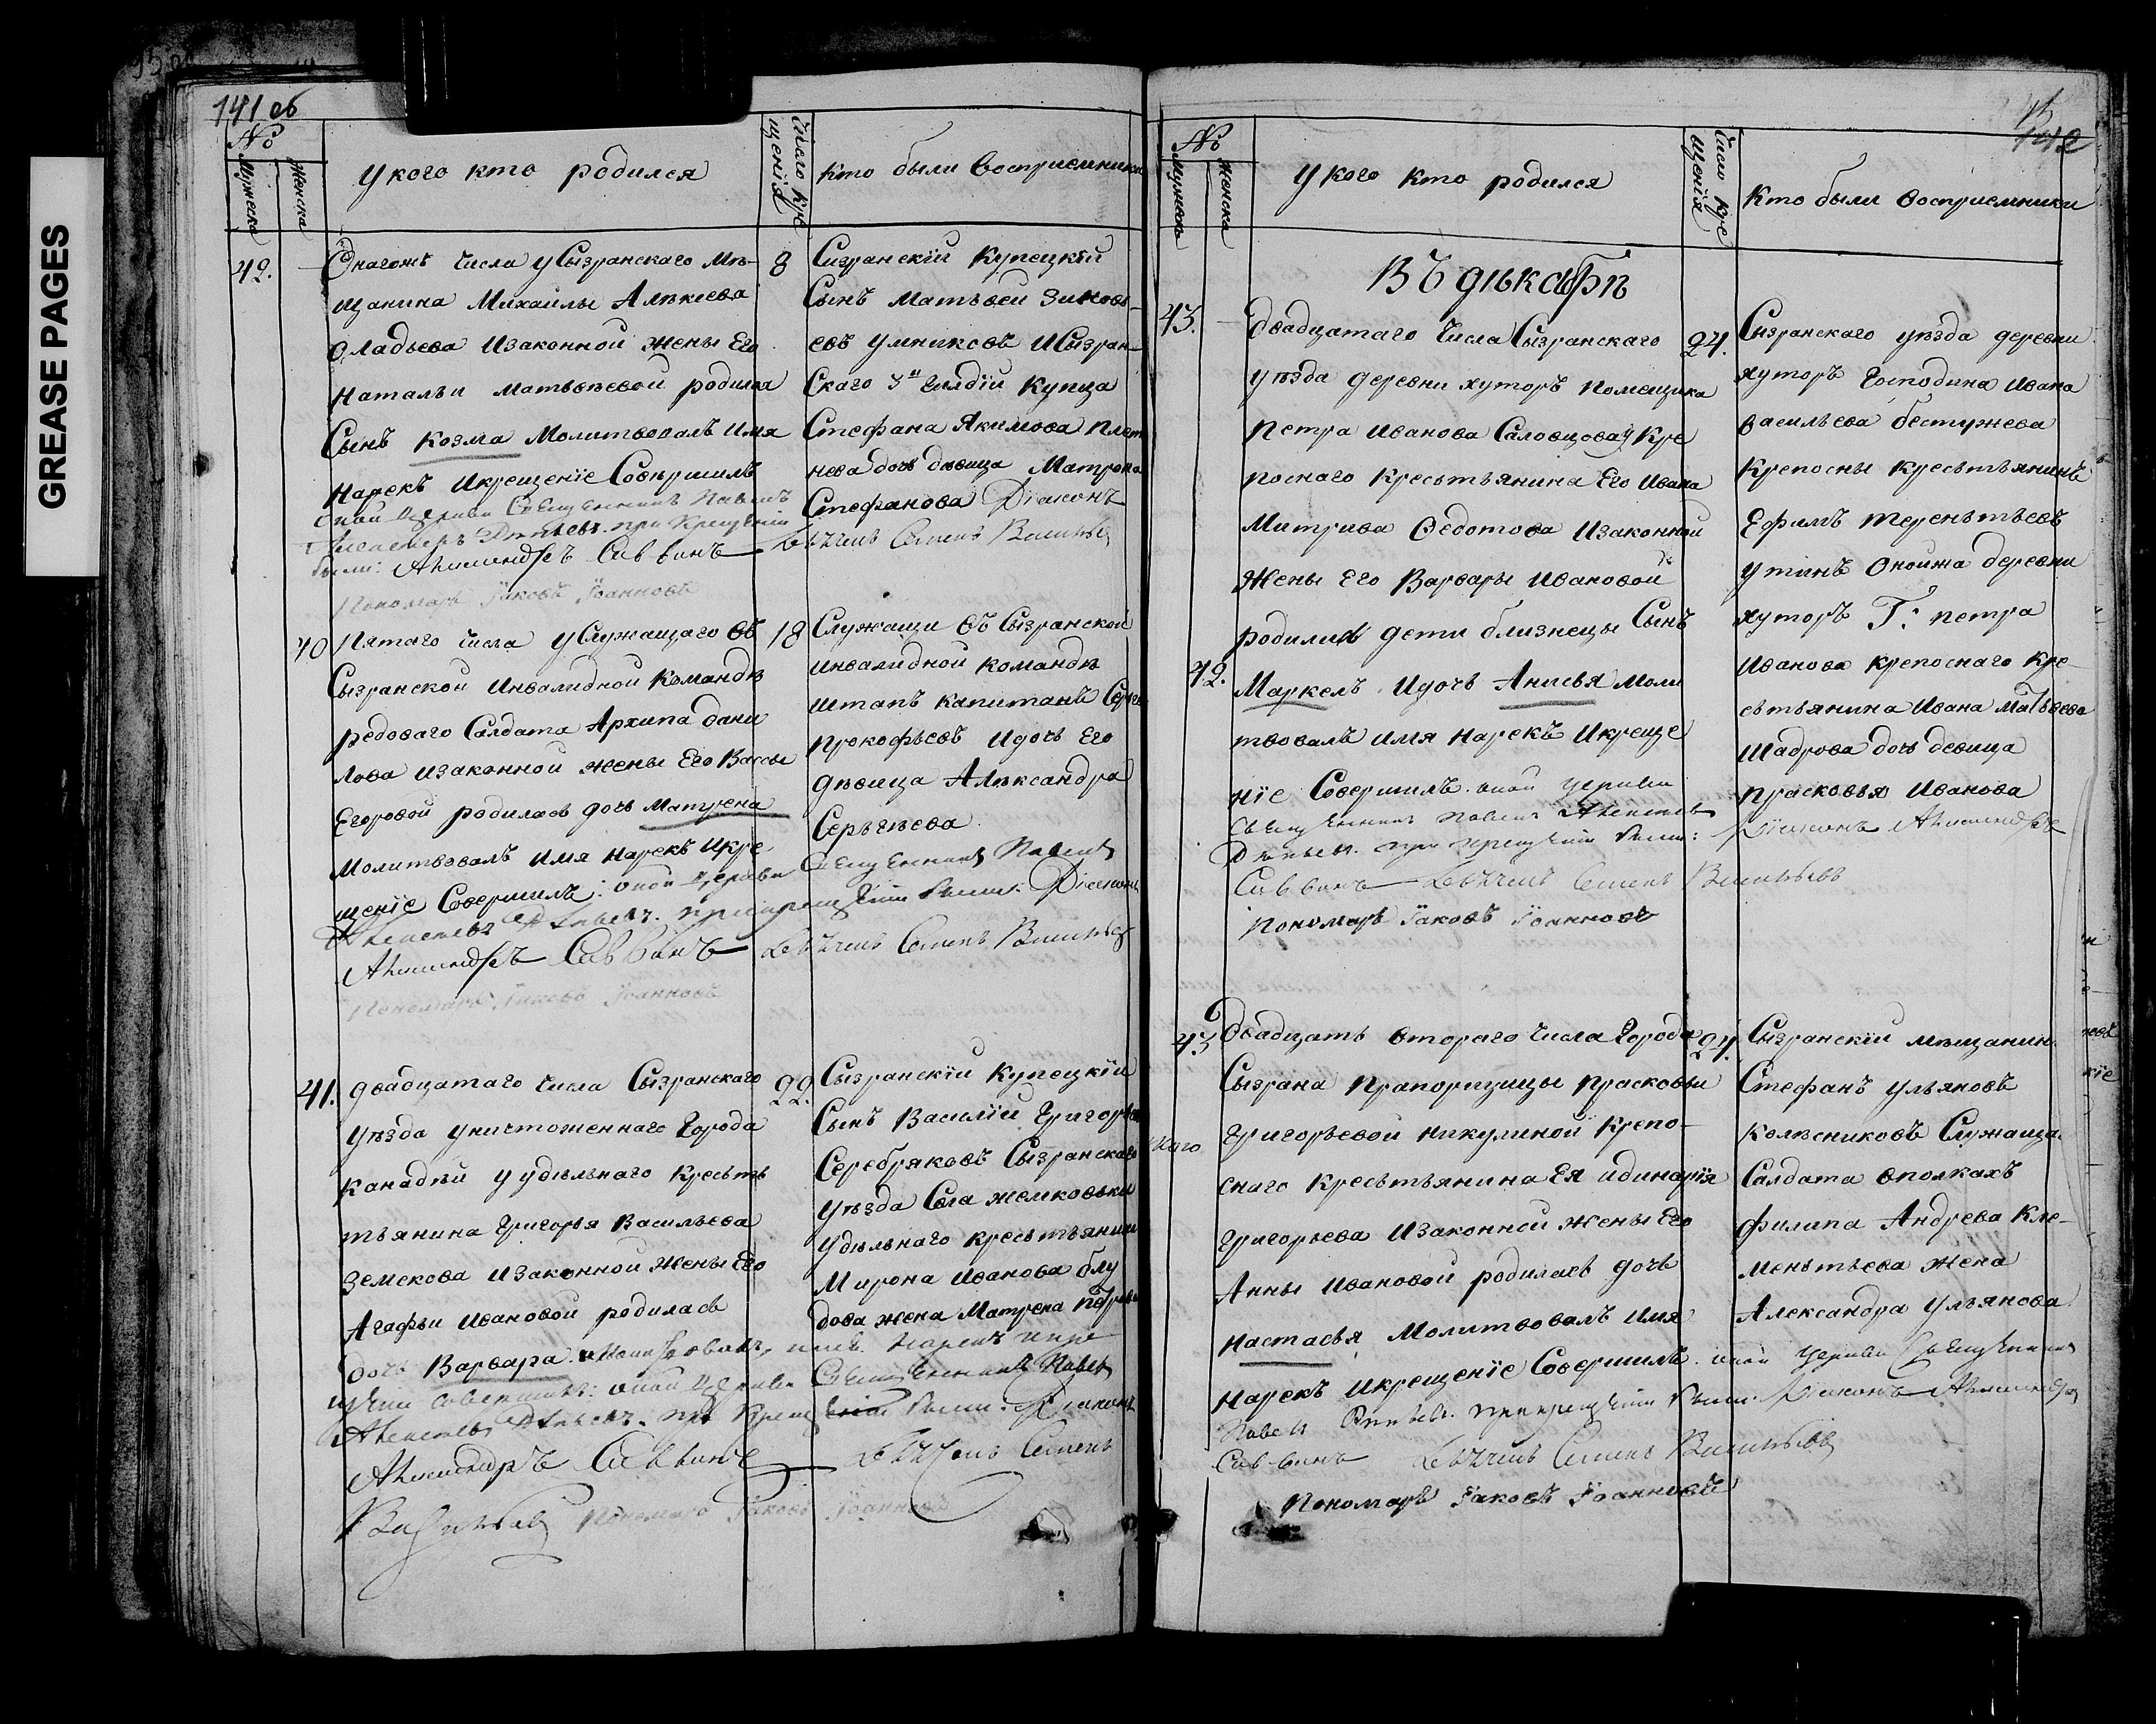 GREASE PAGES
141 об
№
Мужеска
Женска
У кого кто родился
Число кре
щенiя
Кто были восприемники
42.
Онагожъ числа у Сызранскаго Мѣ-
8
щанина Михайлы Алѣкѣева
Оладьева изаконной жены Его
Натальи Матьвѣевой родился
Сынъ Козма Молитвовалъ имя
Нарекъ икрещенiе Совершилъ
оной Церкви Священникъ Павелъ
при Крещенiи
были: Александръ Саввинъ
Пономарь Iаковъ Iоанновъ
Сызранскiй Купецкiй
Сынъ Матьвей Зиновь-
евъ Умниковъ иСызран-
Скаго 3й Гилдiи Купца
Стефана Якимова Плет
нева дочь дѣвица Матрона
Стефанова Дiаконъ
Семенъ Васильев
40
Пятаго числа уСлужащаго въ
18
Сызранской инвалидной Командѣ
редоваго Салдата Архипа Дани
лова изаконной жены Его Вассы
Егоровой родилась дочь Матрена
Молитвовалъ имя нарекъ икре
щенiе Совершилъ: оной Церкви Священникъ Павелъ
прикрещенiи были: Дiаконъ
Александръ Саввинъ Семенъ Васильев
Пономарь Iаковъ Iоанновъ
Служащи въ Сызранской
инвалидной командѣ
штапъ капитанъ Серге
Прокофьевъ идочь Его
дѣвица Алѣксандра
Серьгѣева
41.
двадцатаго числа Сызранскаго
22.
уѣзда уничтоженнаго Города
Канадѣи у удѣльнаго Кресьть
тьянина Григорья Васильева
Земскова изаконной жены Его
Агафьи Ивановой родилась
дочь Варвара. Молитвовалъ, имя. Нарекъ икре
щенiи совершилъ: оной Церкви Священникъ Павелъ
при Крещенiи были: Дiаконъ
Александръ Саввинъ Семенъ
Васильев Пономарь Iаковъ Iоанновъ
Сызранскiй Купецкiй
Сынъ Василiй Григорьев
Серебряковъ Сызранскаго
уѣзда Села жемковьки
удѣльнаго кресьтьянина
Мирона Иванова Блу
дова жена Матрена Петрова
142
№
Мужеска
Женска
У кого кто родился
Число кре
щенiя
Кто были восприемники
Въ дѣкабрѣ
43.
двадцатаго числа Сызранскаго
24.
уѣзда деревни хуторъ помещика
Петра Иванова Саловцова у Кре
поснаго Кресьтьянина Его Ивана
Митрива Федотова изаконной
жены Его Варвары Ивановой
родились дети близнецы Сынъ
42.
Маркелъ идочь Анисья моли
твовалъ имя нарекъ икреще
нiе Совершилъ. оной церкви
Священникъ Павелъ
при крещенiи были: Дiаконъ Александръ
Саввинъ Семенъ Васильевъ
Пономарь Iаковъ Iоанновъ
Сызранскаго уѣзда деревни
хуторъ Господина Ивана
Васильева Бестужева
Крепосны Кресьтьянинъ
Ефимъ Тереньтьевъ
Утинъ Оноижа деревни
хуторъ Г: Петра
Иванова крепоснаго Кре-
сьтьянина Ивана Матьвѣева
Шадрова дочь девица
Прасковья Иванова
43
двадцать втораго числа Города
24.
Сызрана Прапорщицы Прасковьи
Григорьевой Никулиной Крепо-
снаго Кресьтьянина Ея
Григорьева изаконной жены Его
Анны Ивановой родилась дочь
Настасья, Молитвовалъ имя
Нарекъ икрещенiе Совершилъ. оной Церкви Священникъ
Павелъ прикрещенiи были. Дiаконъ Александръ
Саввинъ Семенъ Васильевъ
Пономарь Iаковъ Iоанновъ
Сызранскiй мѣщанин
Стефанъ Ульяновъ
Колѣсниковъ Служаща
Салдата вполкахъ
Филипа Андрева Кле-
меньтьева жена
Александра Ульянова